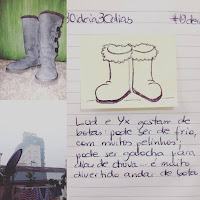 30deia30dias
#19dez
Lud e Yx gostam de
botas: pode ser de frio,
com muitos pelinhos;
pode ser galocha para
dias de chuva... é muito
divertido andar de bota